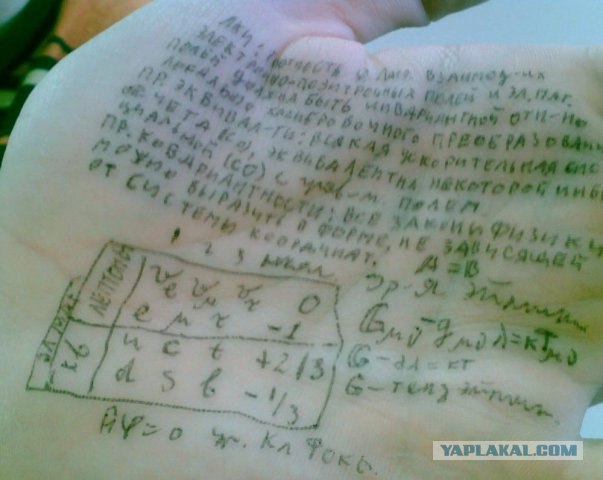 ЛКИ: плотность ф. Лагр. взаимод-их
электронно-позитронных полей и эл. маг.
полей должна быть инвариантной отн-но
локально калибровочного преобразования
пр. эквивал-ти: всякая ускорительная сис
отчета (СО), эквивалентна некоторой инер
циальной (СО) с грав-м. полем.
пр. ковариантности: все законы физики
можно выразить в форме, не зависящей
от системы координат. A = B
1 2 3 покол.
ЛЕПТОНЫ νe νμ ντ 0
e μ τ -1
КВ u c t +2/3
d s b -1/3
Ур-я Эйнштейна
Gμν - gμνλ = кTμν
G - gλ = кT
G - тенз Эйншт.
Aφ = 0 ур. Кл Фока.
YAPLAKAL.COM